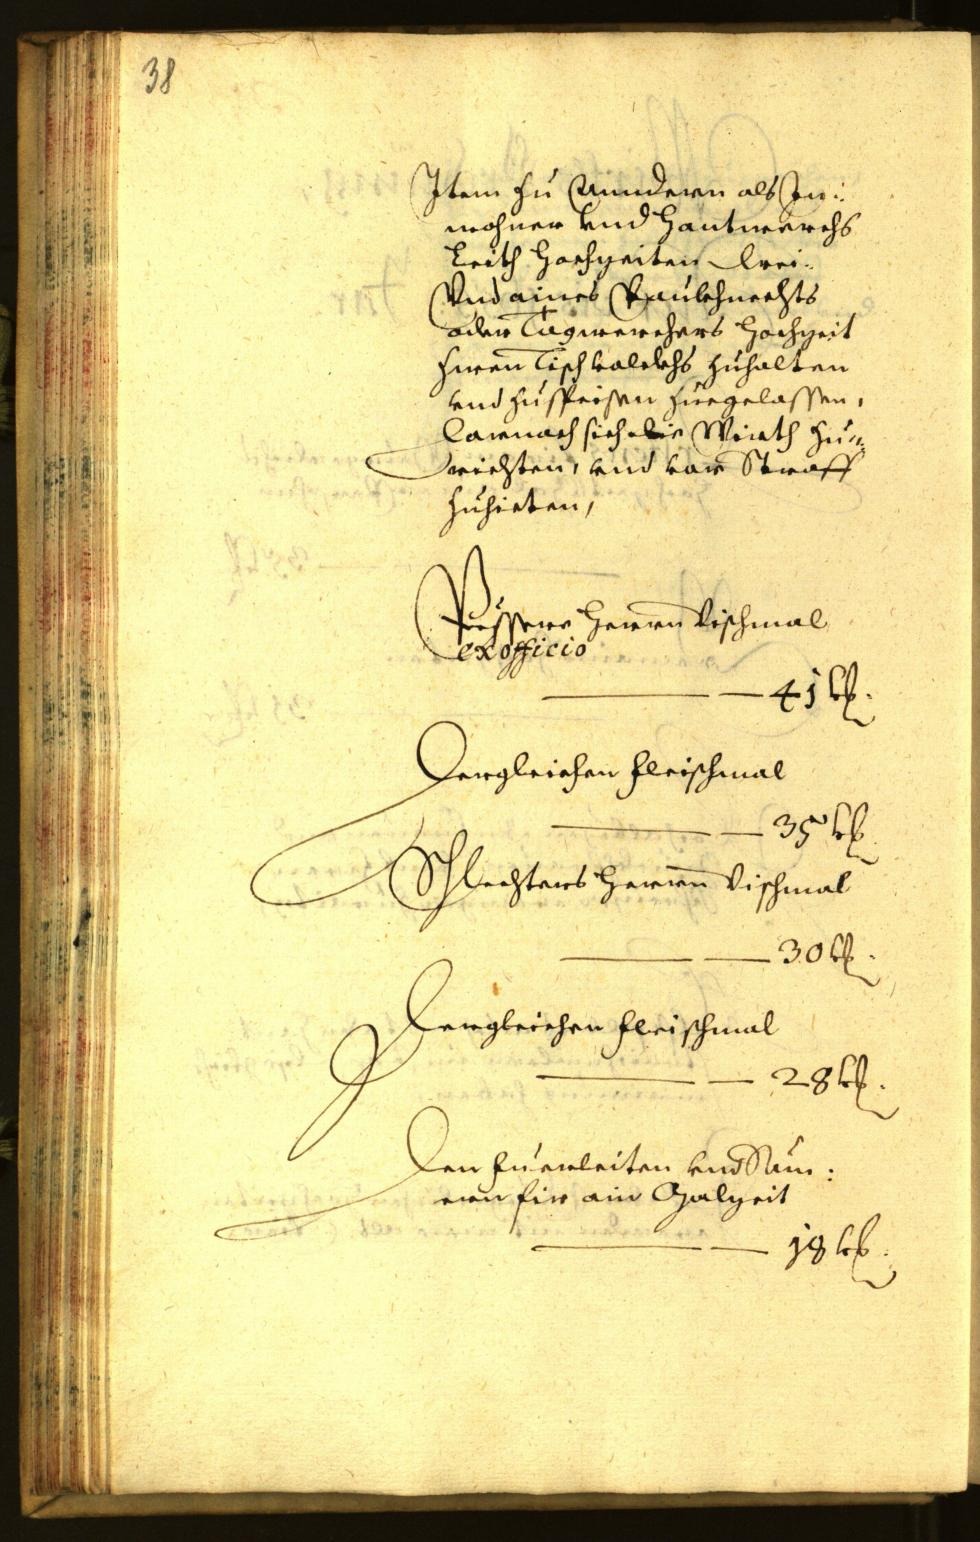 38
Item zu Mindern als In¬
wohner vnd Hantwerchs
Leith Hochzeiten drei¬
Vnd aines Paukhnechts
oder Tagwerchers Hochzeit
zwen Tisch volckhs zuhalten
vnd zuspeisen zuegelassen,
Darnach sich die Wirth zu¬
richten, vnd vor Straff
zuhieten,
Pessers Herrn Vischmal
ex officio
41 kr.
Dergleichen Fleischmal
35 kr.
Schlechters Herrn Vischmal
30 kr.
Dergleichen Fleischmal
28 kr.
Den Fuerleiten vnd Sām¬
ern fir ain Malzeit
18 kr.